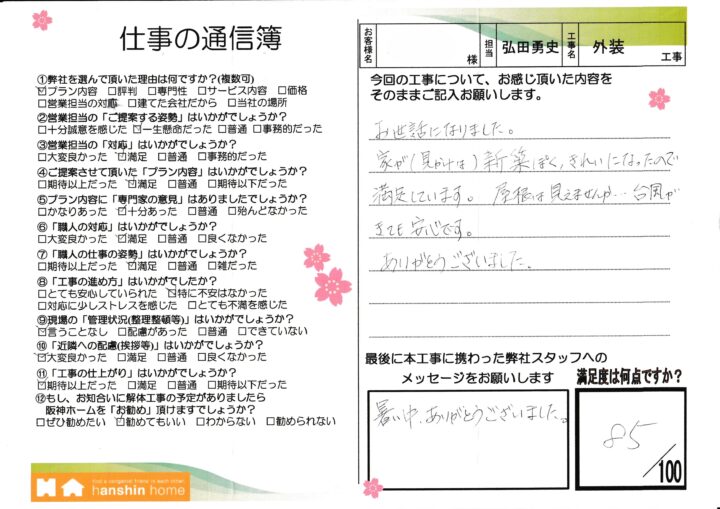 仕事の通信簿
①弊社を選んで頂いた理由は何ですか?(複数可)
☑プラン内容 □評判 □専門性 □サービス内容 □価格
□営業担当の対応 □建てた会社だから □当社の場所
②営業担当の「ご提案する姿勢」はいかがでしょうか?
□十分誠意を感じた ☑一生懸命だった □普通 □事務的だった
③営業担当の「対応」はいかがでしょうか?
□大変良かった ☑満足 □普通 □事務的だった
④ご提案させて頂いた「プラン内容」はいかがでしょうか?
□期待以上だった ☑満足 □普通 □期待以下だった
⑤プラン内容に「専門家の意見」はありましたでしょうか?
□かなりあった ☑十分あった □普通 □殆んどなかった
⑥「職人の対応」はいかがでしょうか?
□大変良かった ☑満足 □普通 □良くなかった
⑦「職人の仕事の姿勢」はいかがでしょうか?
□期待以上だった ☑満足 □普通 □雑だった
⑧「工事の進め方」はいかがでしたか?
□とても安心していられた ☑特に不安はなかった
□対応に少しストレスを感じた □とても不満を感じた
⑨現場の「管理状況(整理整頓等)」はいかがでしょうか?
☑言うことなし □配慮があった □普通 □できていない
⑩「近隣への配慮(挨拶等)」はいかがでしょうか?
☑大変良かった □満足 □普通 □良くなかった
⑪「工事の仕上がり」はいかがでしょうか?
☑期待以上だった □満足 □普通 □期待以下だった
⑫もし、お知合いに解体工事の予定がありましたら
阪神ホームを「お勧め」頂けますでしょうか?
□ぜひ勧めたい ☑勧めてもいい □わからない □勧められない
find a congenial friend in each other.
hanshin home
お客様名 様 担当 弘田勇史 工事名 外装 工事
今回の工事について、お感じ頂いた内容を
そのままご記入お願いします。
お世話になりました。
家が(見かけは)新築ぽく、きれいになったので
満足しています。 屋根は見えませんが… 台風が
きても安心です。
ありがとうございました。
最後に本工事に携わった弊社スタッフへの
メッセージをお願いします
暑い中、ありがとうございました。
満足度は何点ですか?
85/100